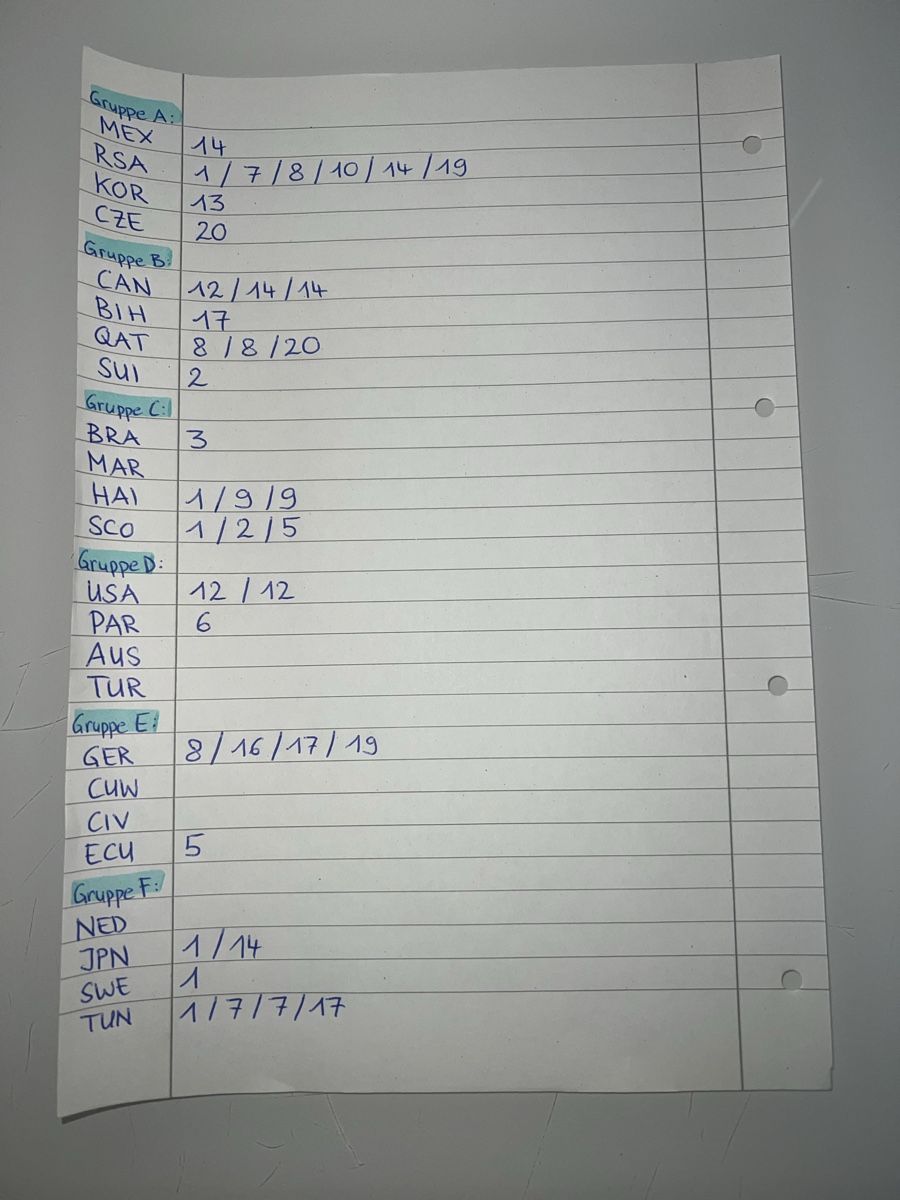 Gruppe A:
MEX 14
RSA 1 / 7 / 8 / 10 / 14 / 19
KOR 13
CZE 20
Gruppe B:
CAN 12 / 14 / 14
BIH 17
QAT 8 / 8 / 20
SUI 2
Gruppe C:
BRA 3
MAR
HAI 1 / 9 / 9
SCO 1 / 2 / 5
Gruppe D:
USA 12 / 12
PAR 6
AUS
TUR
Gruppe E:
GER 8 / 16 / 17 / 19
CUW
CIV
ECU 5
Gruppe F:
NED
JPN 1 / 14
SWE 1
TUN 1 / 7 / 7 / 17